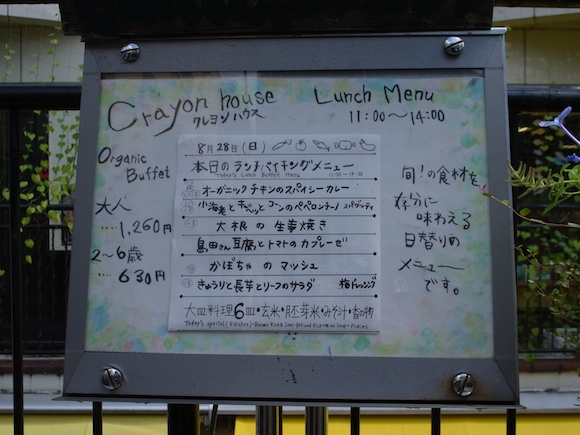 Crayon house
クレヨンハウス
Lunch Menu
11:00〜14:00
Organic
Buffet
大人
1,260円
2〜6歳
630円
8月28日(日)
本日のランチバイキングメニュー
Today's Lunch Buffet Menu
オーガニックチキンのスパイシーカレー
小海老とキャベツとコーンのペペロンチーノ スパゲッティ
大根の生姜焼き
島田さん豆腐とトマトのカプレーゼ
かぼちゃのマッシュ
きゅうりと長芋とリーフのサラダ 梅ドレッシング
大皿料理6皿・玄米・胚芽米・みそ汁・香の物
旬!の食材を
存分に
味わえる
日替りの
メニュー
です。